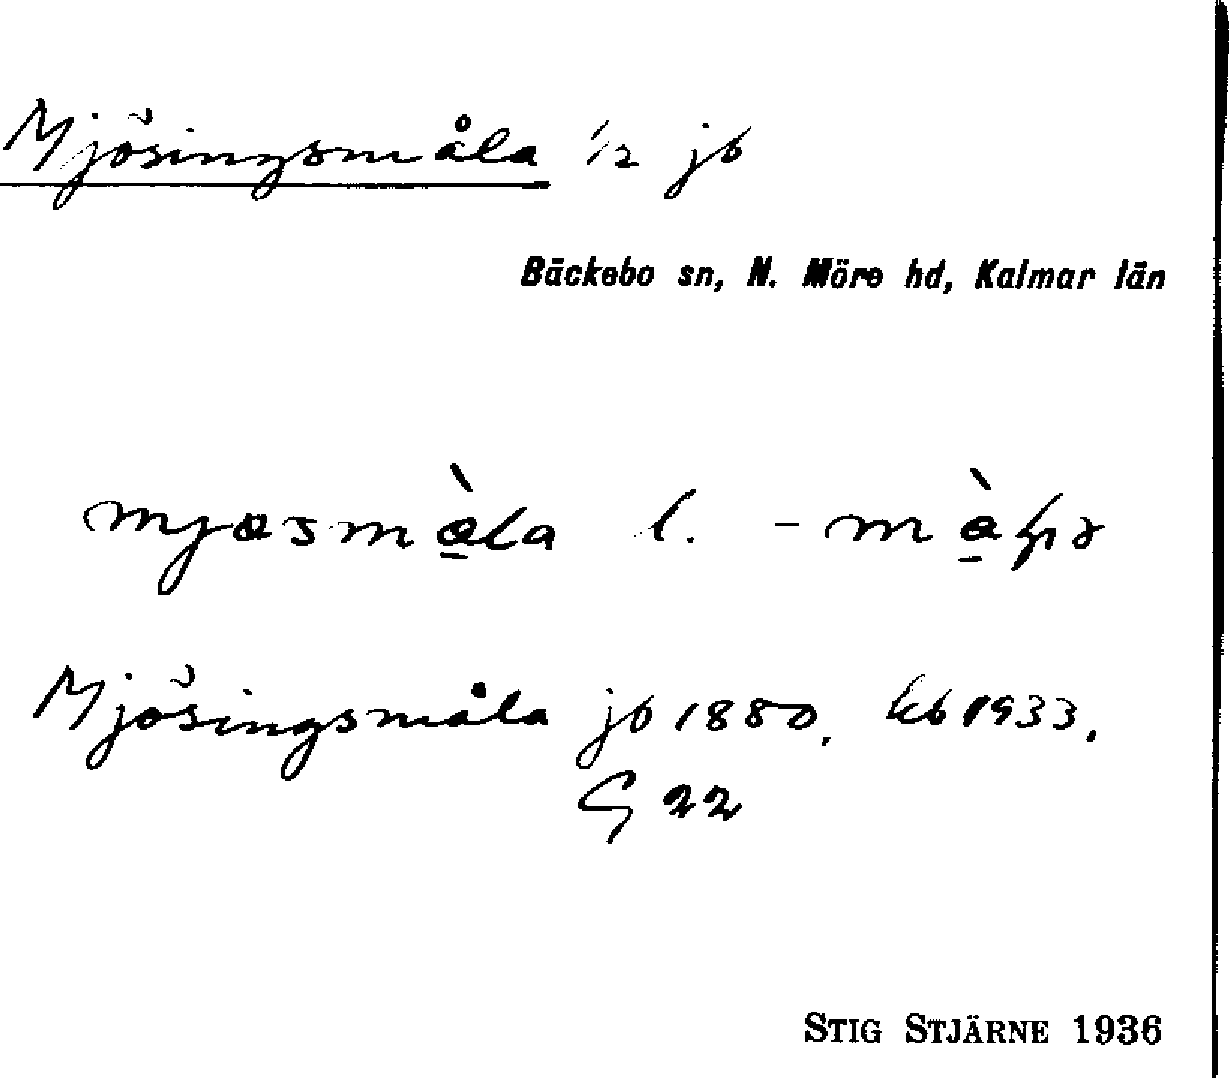 Mjösingsmåla 1/2 jb
Bäckebo sn, N. Möre hd, Kalmar län
l.
Mjösingsmåla jb 1880. kb 1933.
G 22
STIG STJÄRNE 1936